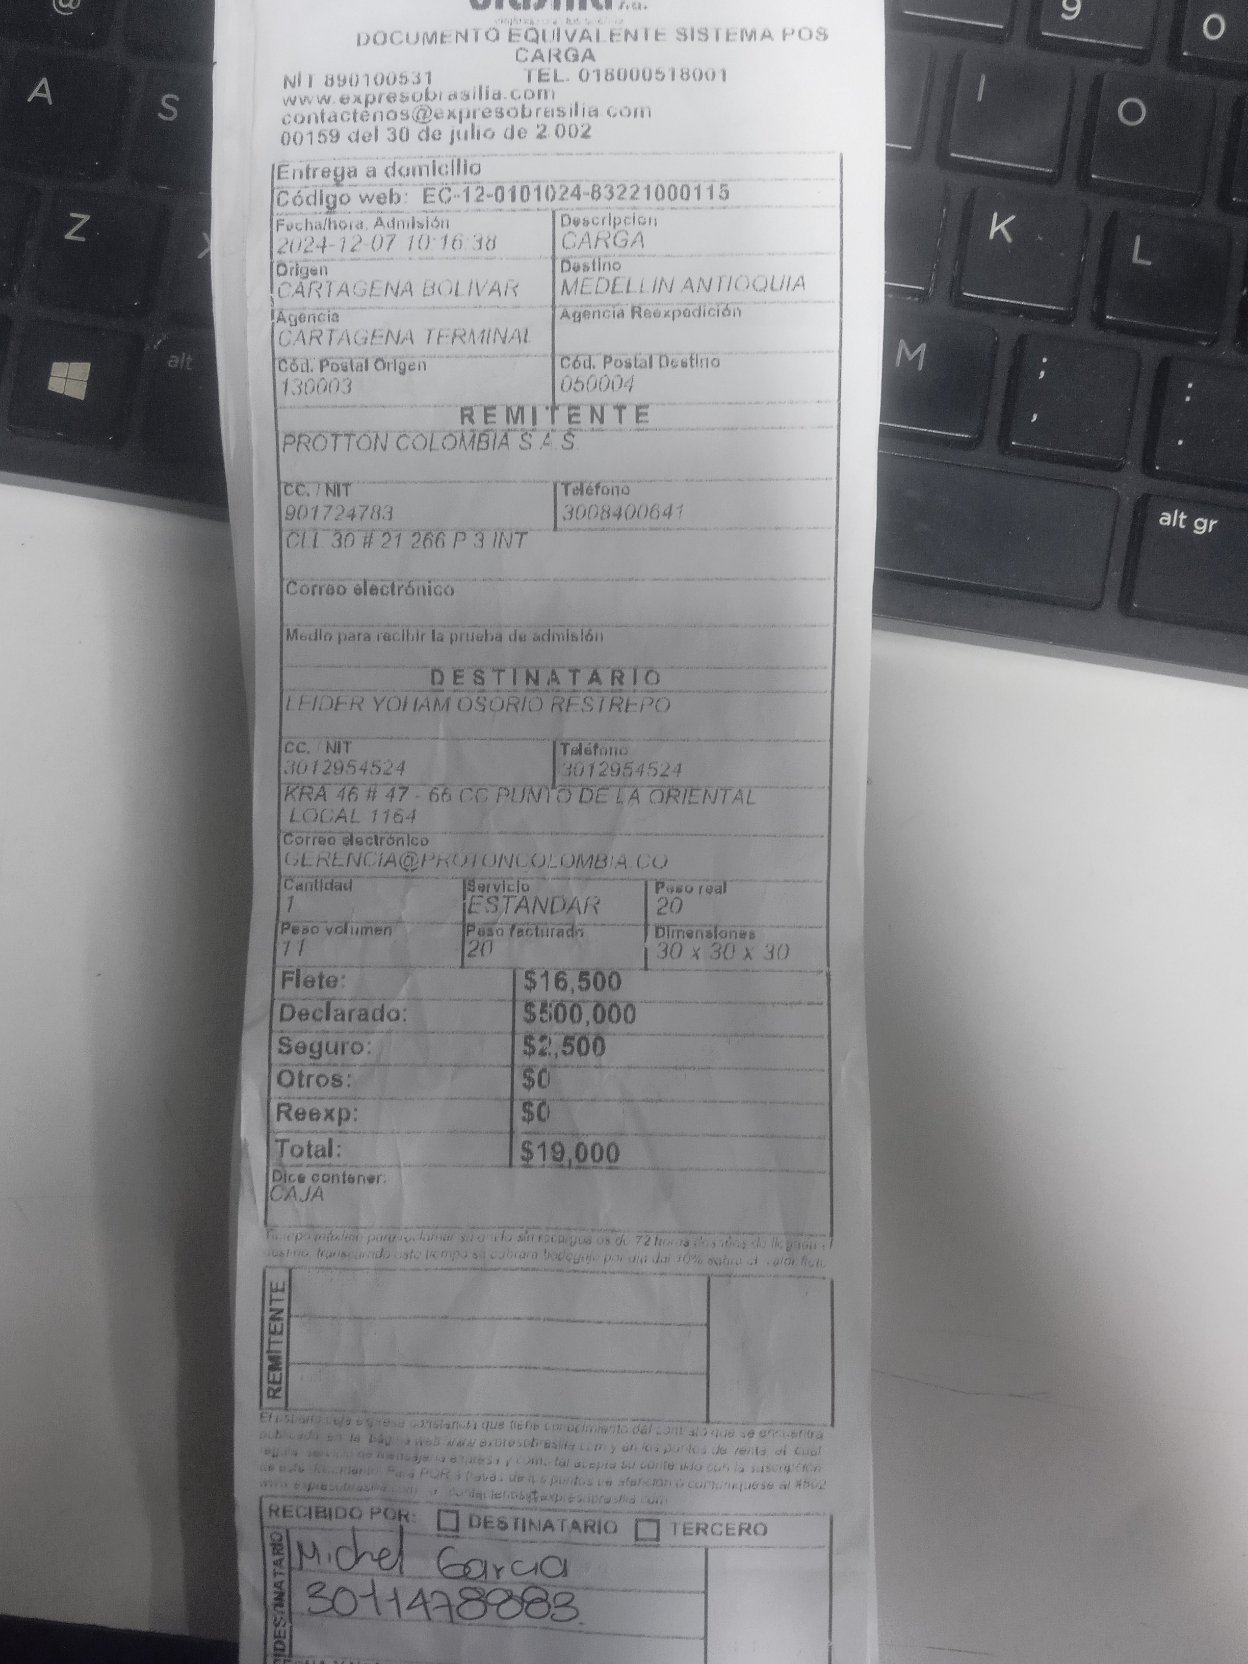 DOCUMENTO EQUIVALENTE SISTEMA POS
CARGA
NIT 890100531 TEL. 018000518001
www.expresobrasilia.com
contactenos@expresobrasilia.com
00159 del 30 de julio de 2.002
Entrega a domicilio
Código web: EC-12-0101024-83221000115
Fecha/hora, Admisión Descripcion
2024-12-07 10:16:38 CARGA
Origen Destino
CARTAGENA BOLIVAR MEDELLIN ANTIOQUIA
Agencia Agencia Reexpedición
CARTAGENA TERMINAL
Cód. Postal Origen Cód. Postal Destino
130003 050004
REMITENTE
PROTTON COLOMBIA S.A.S.
CC. / NIT Teléfono
901724783 3008400641
CLL 30 # 21 266 P 3 INT
Correo electrónico
Medio para recibir la prueba de admisión
DESTINATARIO
LEIDER YOHAM OSORIO RESTREPO
CC. / NIT Teléfono
3012954524 3012954524
KRA 46 # 47 - 66 CC PUNTO DE LA ORIENTAL
LOCAL 1164
Correo electrónico
GERENCIA@PROTONCOLOMBIA.CO
Cantidad Servicio Peso real
1 ESTANDAR 20
Peso volumen Peso facturado Dimensiones
11 20 30 x 30 x 30
Flete: $16,500
Declarado: $500,000
Seguro: $2,500
Otros: $0
Reexp: $0
Total: $19,000
Dice contener:
CAJA
72 horas
destino, transcurrido este tiempo se cobrara bodegaje por dia del 10% sobre el valor flete
REMITENTE
que tiene conocimiento del contrato que se encuentra
publicado en la página web www.expresobrasilia.com y en los puntos de venta, el cual
de este documento. Para PQR a través de los puntos de atención o comuníquese al #502
RECIBIDO POR: DESTINATARIO TERCERO
DESTINATARIO
Michel Garcia
3011478883
@
A
S
Z
alt
9
O
I
O
K
L
M
;
,
:
.
alt gr